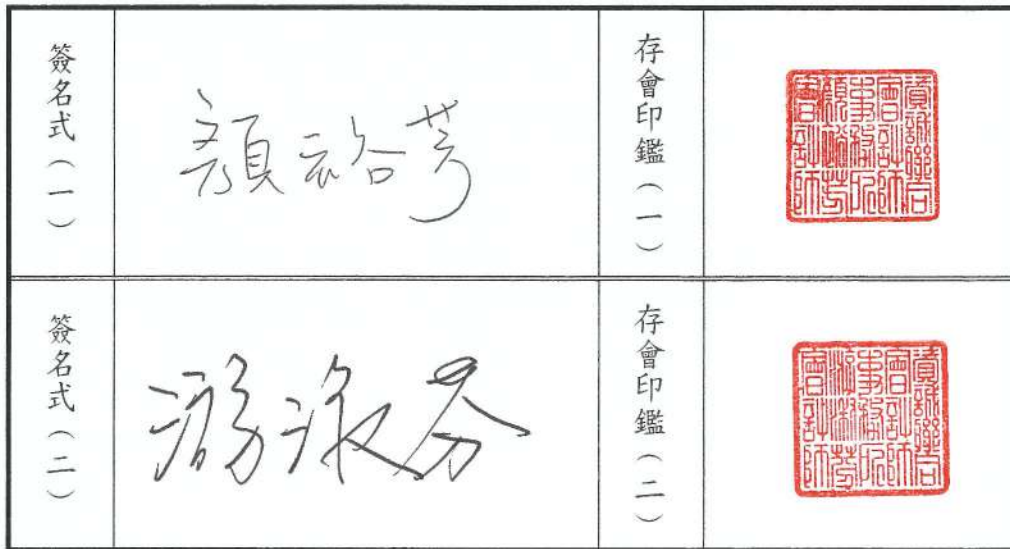 簽名式（一）
顏裕芳
存會印鑑（一）
資誠聯合
會計師
事務所
顏裕芳
會計師
簽名式（二）
游淑芬
存會印鑑（二）
資誠聯合
會計師
事務所
游淑芬
會計師